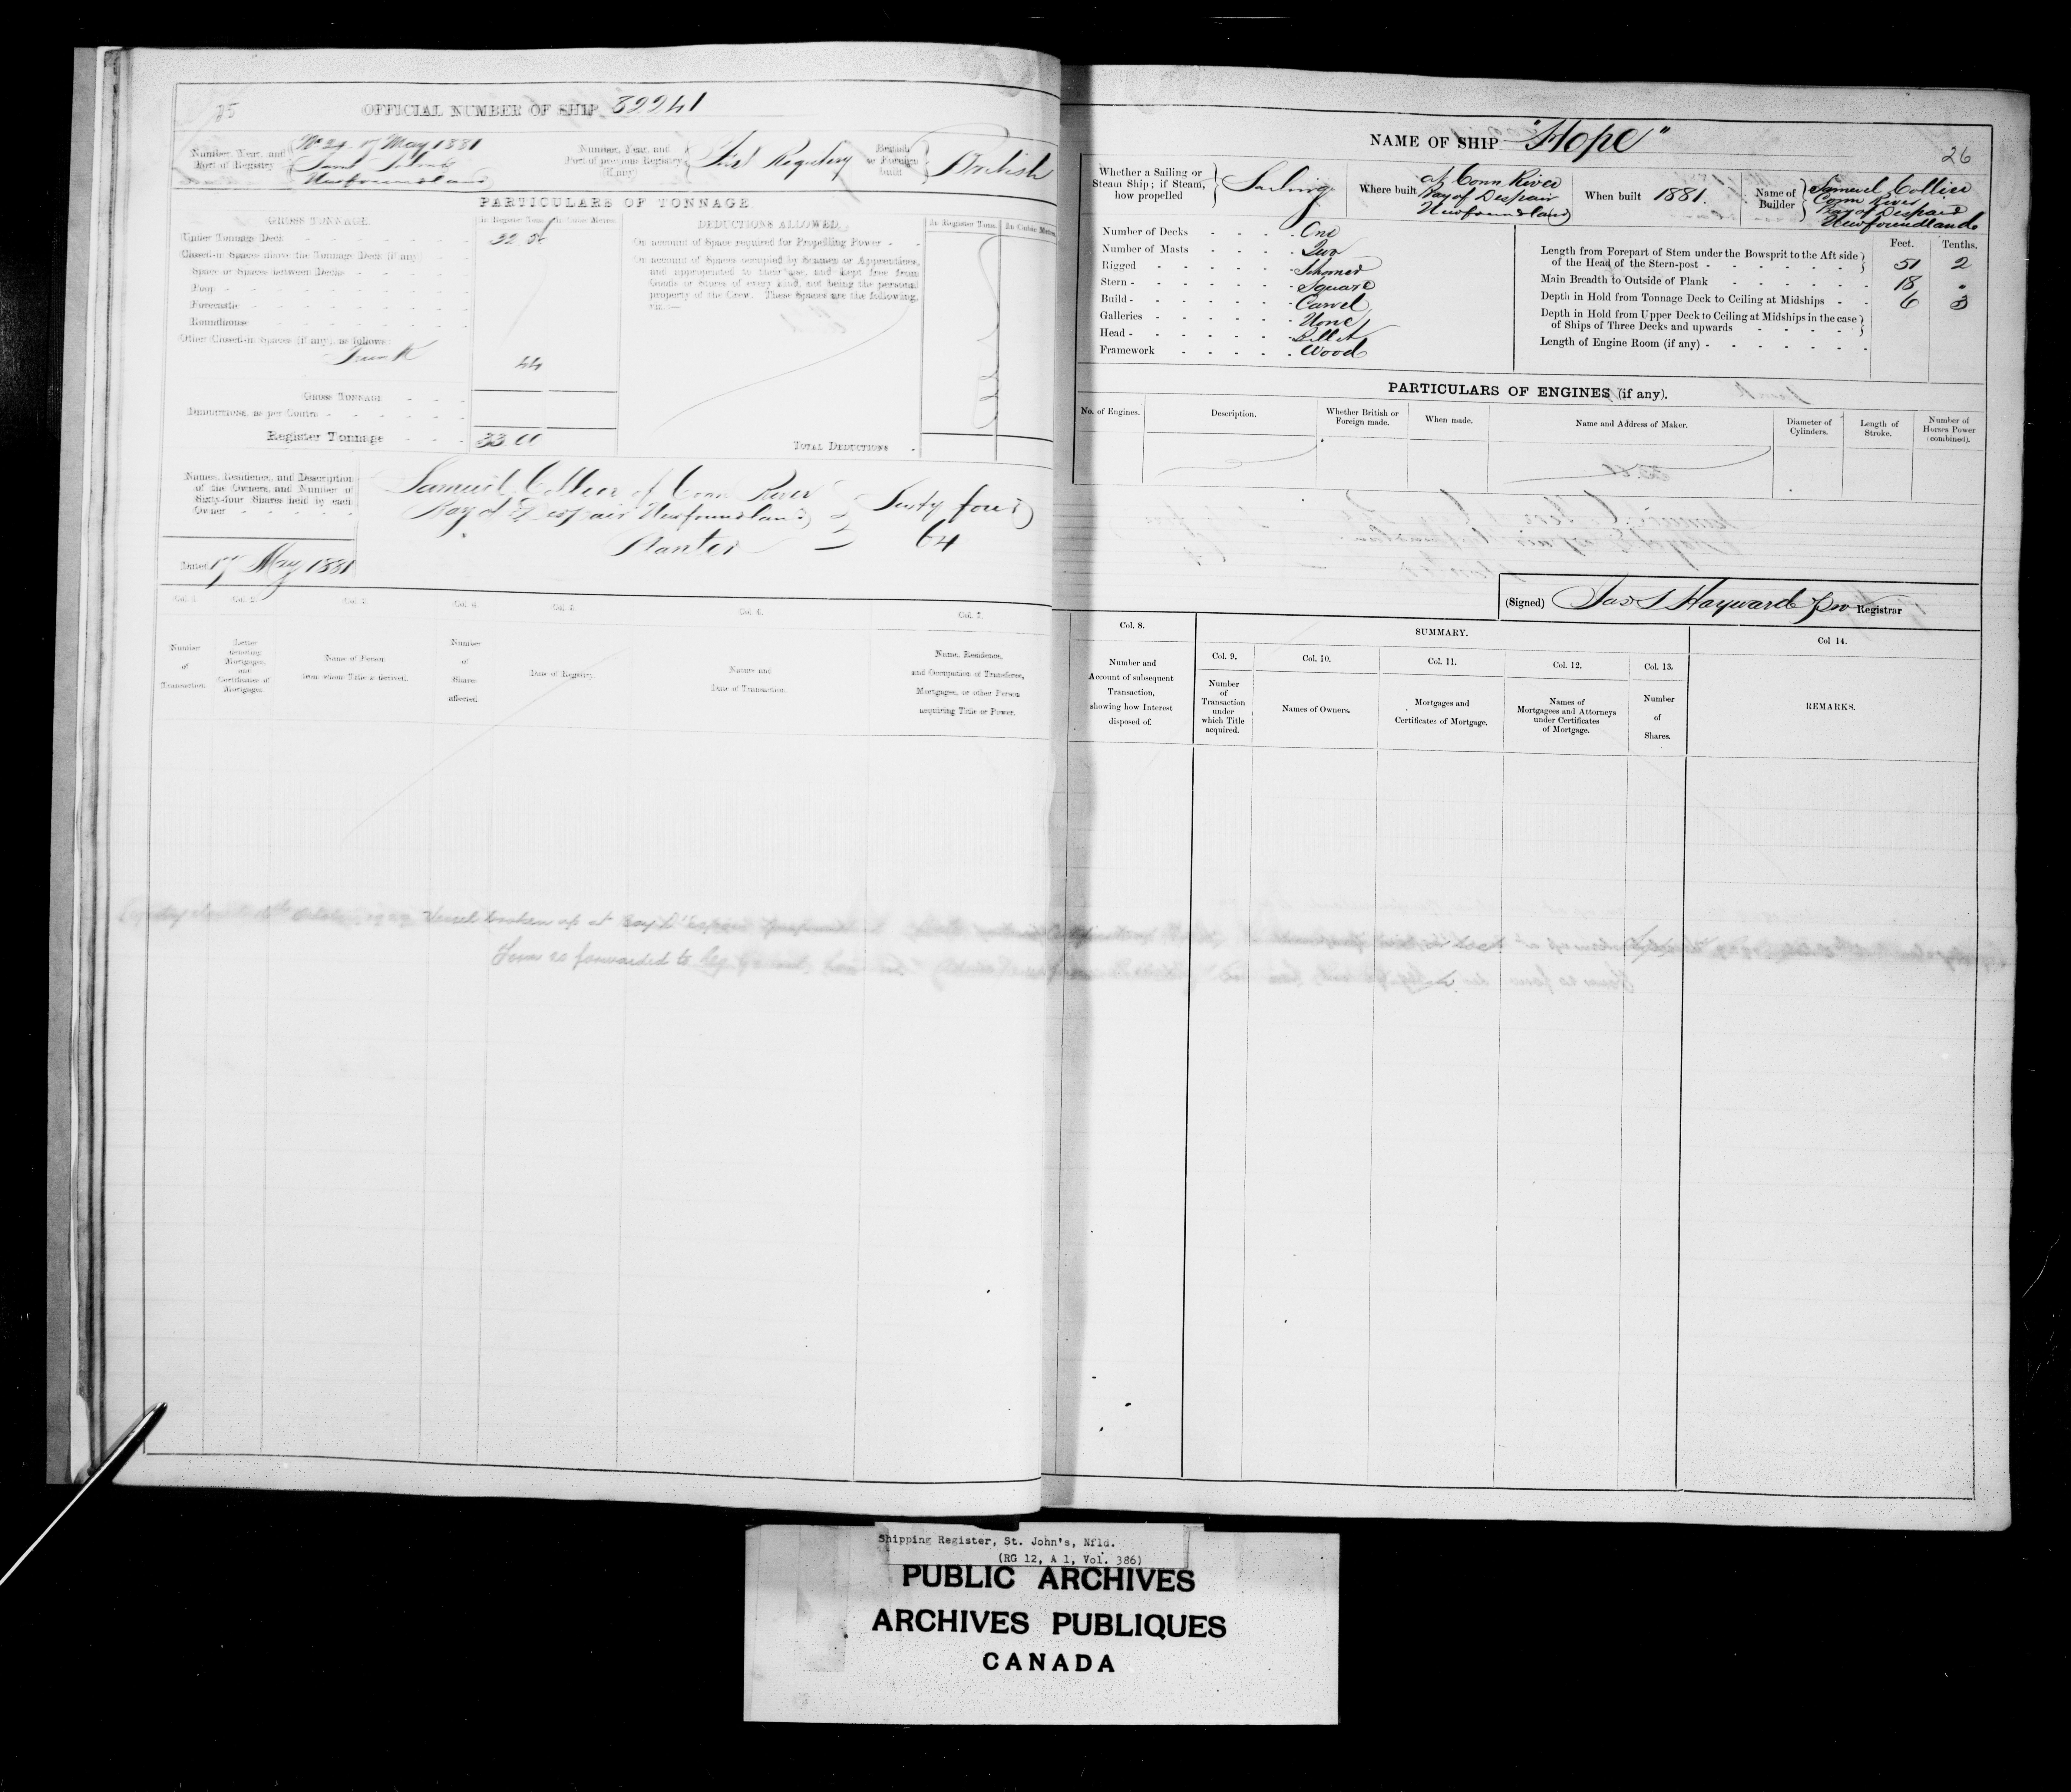 25
OFFICIAL NUMBER OF SHIP 82241
Number, Year, and Port of Registry
No 24 of May 1881
Saint Johns
Newfoundland
Number, Year, and Port of previous Registry (if any)
First Registry
British or Foreign built
British
PARTICULARS OF TONNAGE
GROSS TONNAGE.
In Register Tons. In Cubic Metres.
DEDUCTIONS ALLOWED.
In Register Tons. In Cubic Metres.
Under Tonnage Deck 32.56
Closed-in Spaces above the Tonnage Deck (if any)
Space or Spaces between Decks
Poop
Forecastle
Roundhouse
Other Closed-in Spaces (if any), as follows:
Trunk
44
On account of Space required for Propelling Power
On account of Spaces occupied by Seamen or Apprentices,
and appropriated to their use, and kept free from
Goods or Stores of every kind, not being the personal
property of the Crew. These Spaces are the following,
viz.:—
GROSS TONNAGE
Deductions, as per Contra
Register Tonnage 33.00
TOTAL DEDUCTIONS
Names, Residence, and Description
of the Owners, and Number of
Sixty-four Shares held by each
Owner
Samuel Collier of Conn River
Bay of Despair Newfoundland
Planter
Sixty four
64
Dated 17 May 1881
Col. 1. Col. 2. Col. 3. Col. 4. Col. 5. Col. 6. Col. 7.
Number of Transaction.
Letter denoting Mortgages, and Certificates of Mortgages.
Name of Person from whom Title is derived.
Number of Shares affected.
Date of Registry.
Nature and Date of Transaction.
Name, Residence, and Occupation of Transferee, Mortgagee, or other Person acquiring Title or Power.
Vessel broken up at Bay D'Espoir
forwarded to
NAME OF SHIP "Hope"
26
Whether a Sailing or Steam Ship; if Steam, how propelled
Sailing
Where built
at Conn River
Bay of Despair
Newfoundland
When built 1881.
Name of Builder
Samuel Collier
Conn River
Bay of Despair
Newfoundland
Number of Decks One
Number of Masts Two
Rigged Schooner
Stern Square
Build Carvel
Galleries None
Head Billet
Framework Wood
Feet. Tenths.
Length from Forepart of Stem under the Bowsprit to the Aft side of the Head of the Stern-post 51 2
Main Breadth to Outside of Plank 18 "
Depth in Hold from Tonnage Deck to Ceiling at Midships 6 3
Depth in Hold from Upper Deck to Ceiling at Midships in the case of Ships of Three Decks and upwards
Length of Engine Room (if any)
PARTICULARS OF ENGINES (if any).
No. of Engines.
Description.
Whether British or Foreign made.
When made.
Name and Address of Maker.
Diameter of Cylinders.
Length of Stroke.
Number of Horses Power (combined).
(Signed) Jas S Hayward Registrar
Col. 8.
SUMMARY.
Col 14.
Col. 9. Col. 10. Col. 11. Col. 12. Col. 13.
Number and Account of subsequent Transaction, showing how Interest disposed of.
Number of Transaction under which Title acquired.
Names of Owners.
Mortgages and Certificates of Mortgage.
Names of Mortgagees and Attorneys under Certificates of Mortgage.
Number of Shares.
REMARKS.
Shipping Register, St. John's, Nfld.
(RG 12, A 1, Vol. 386)
PUBLIC ARCHIVES
ARCHIVES PUBLIQUES
CANADA